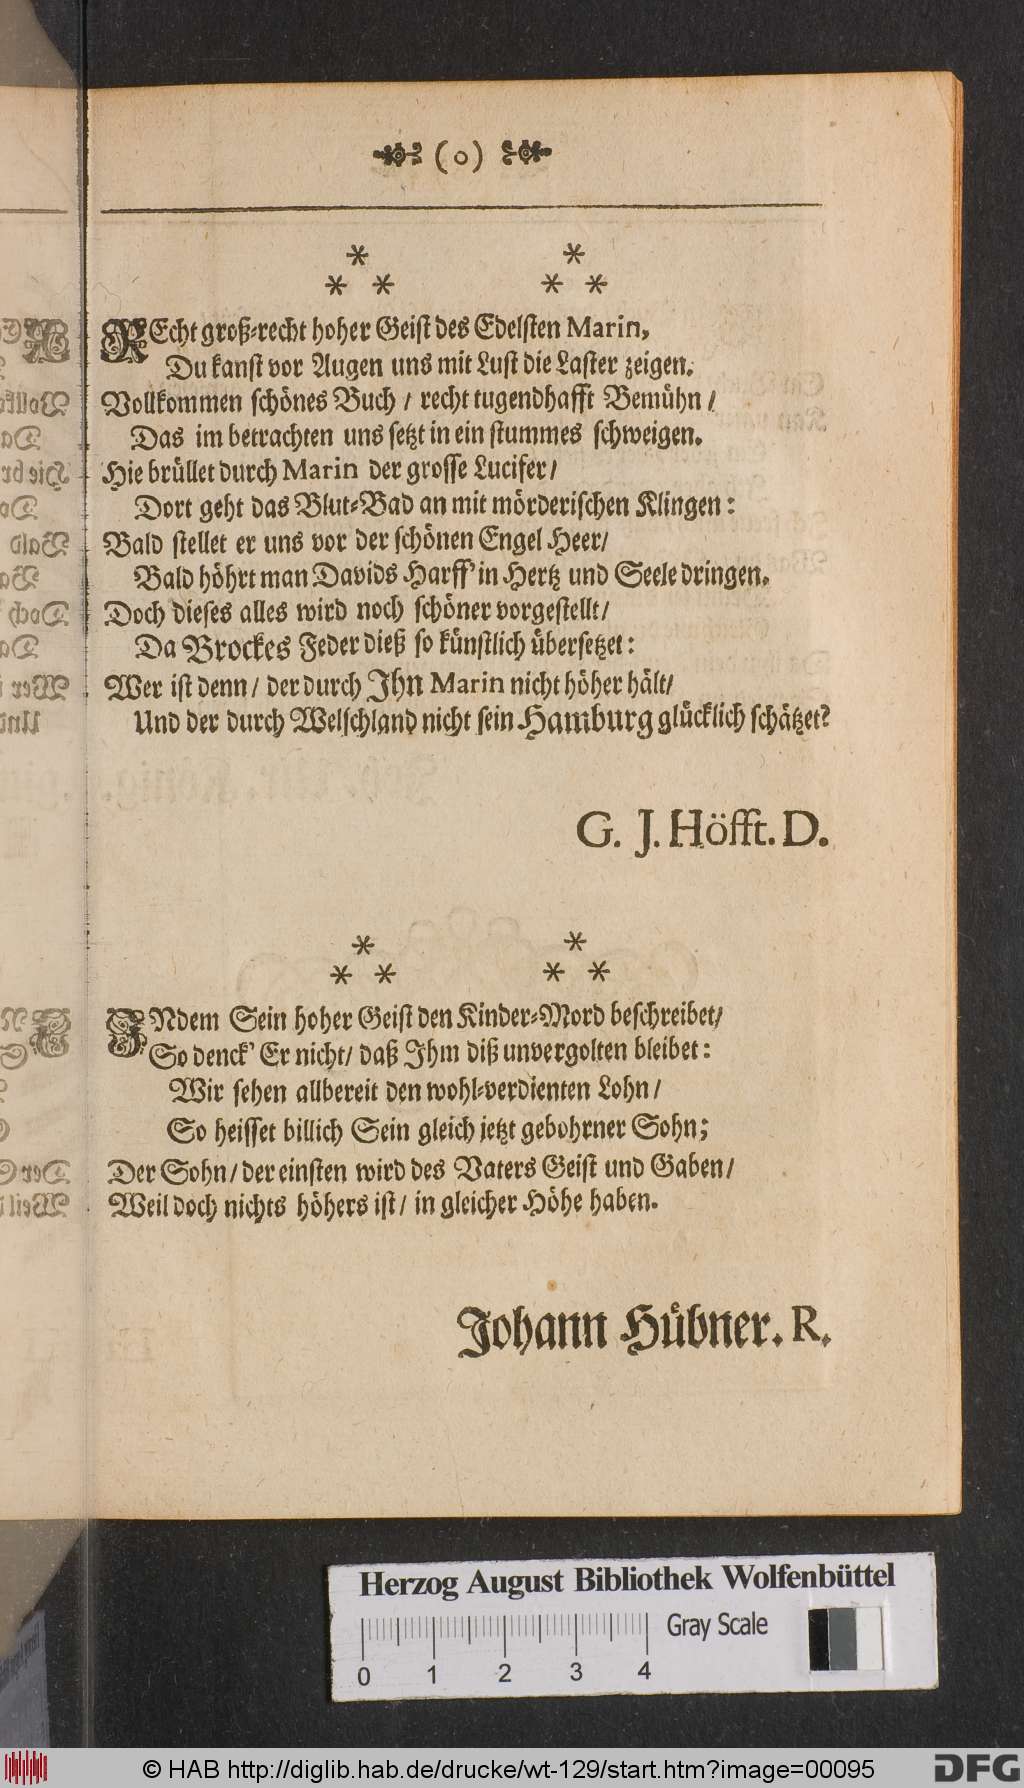 (o)
REcht groß-recht hoher Geist des Edelsten Marin,
Du kanst vor Augen uns mit Lust die Laster zeigen.
Vollkommen schönes Buch / recht tugendhafft Bemühn /
Das im betrachten uns setzt in ein stummes schweigen.
Hie brüllet durch Marin der grosse Lucifer /
Dort geht das Blut-Bad an mit mörderischen Klingen:
Bald stellet er uns vor der schönen Engel Heer /
Bald höhrt man Davids Harff' in Hertz und Seele dringen.
Doch dieses alles wird noch schöner vorgestellt /
Da Brockes Feder dieß so künstlich übersetzet:
Wer ist denn / der durch Ihn Marin nicht höher hält /
Und der durch Welschland nicht sein Hamburg glücklich schätzet?
G. J. Höfft. D.
INdem Sein hoher Geist den Kinder-Mord beschreibet /
So denck' Er nicht / daß Ihm diß unvergolten bleibet:
Wir sehen allbereit den wohl-verdienten Lohn /
So heisset billich Sein gleich jetzt gebohrner Sohn;
Der Sohn / der einsten wird des Vaters Geist und Gaben /
Weil doch nichts höhers ist / in gleicher Höhe haben.
Johann Hübner. R.
Herzog August Bibliothek Wolfenbüttel
Gray Scale
0 1 2 3 4
© HAB http://diglib.hab.de/drucke/wt-129/start.htm?image=00095
DFG